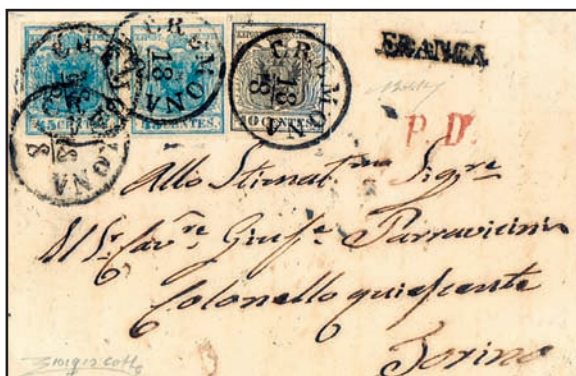 CREMONA
18
8
CREMONA
18
8
CREMONA
18
8
45 CENTES.
45 CENTES.
10 CENTES.
FRANCA
P. D.
Allo Stimat.mo Sigre
Il Sr. Cavre. Giuse. Parravicini
Colonello quiescente
Torino